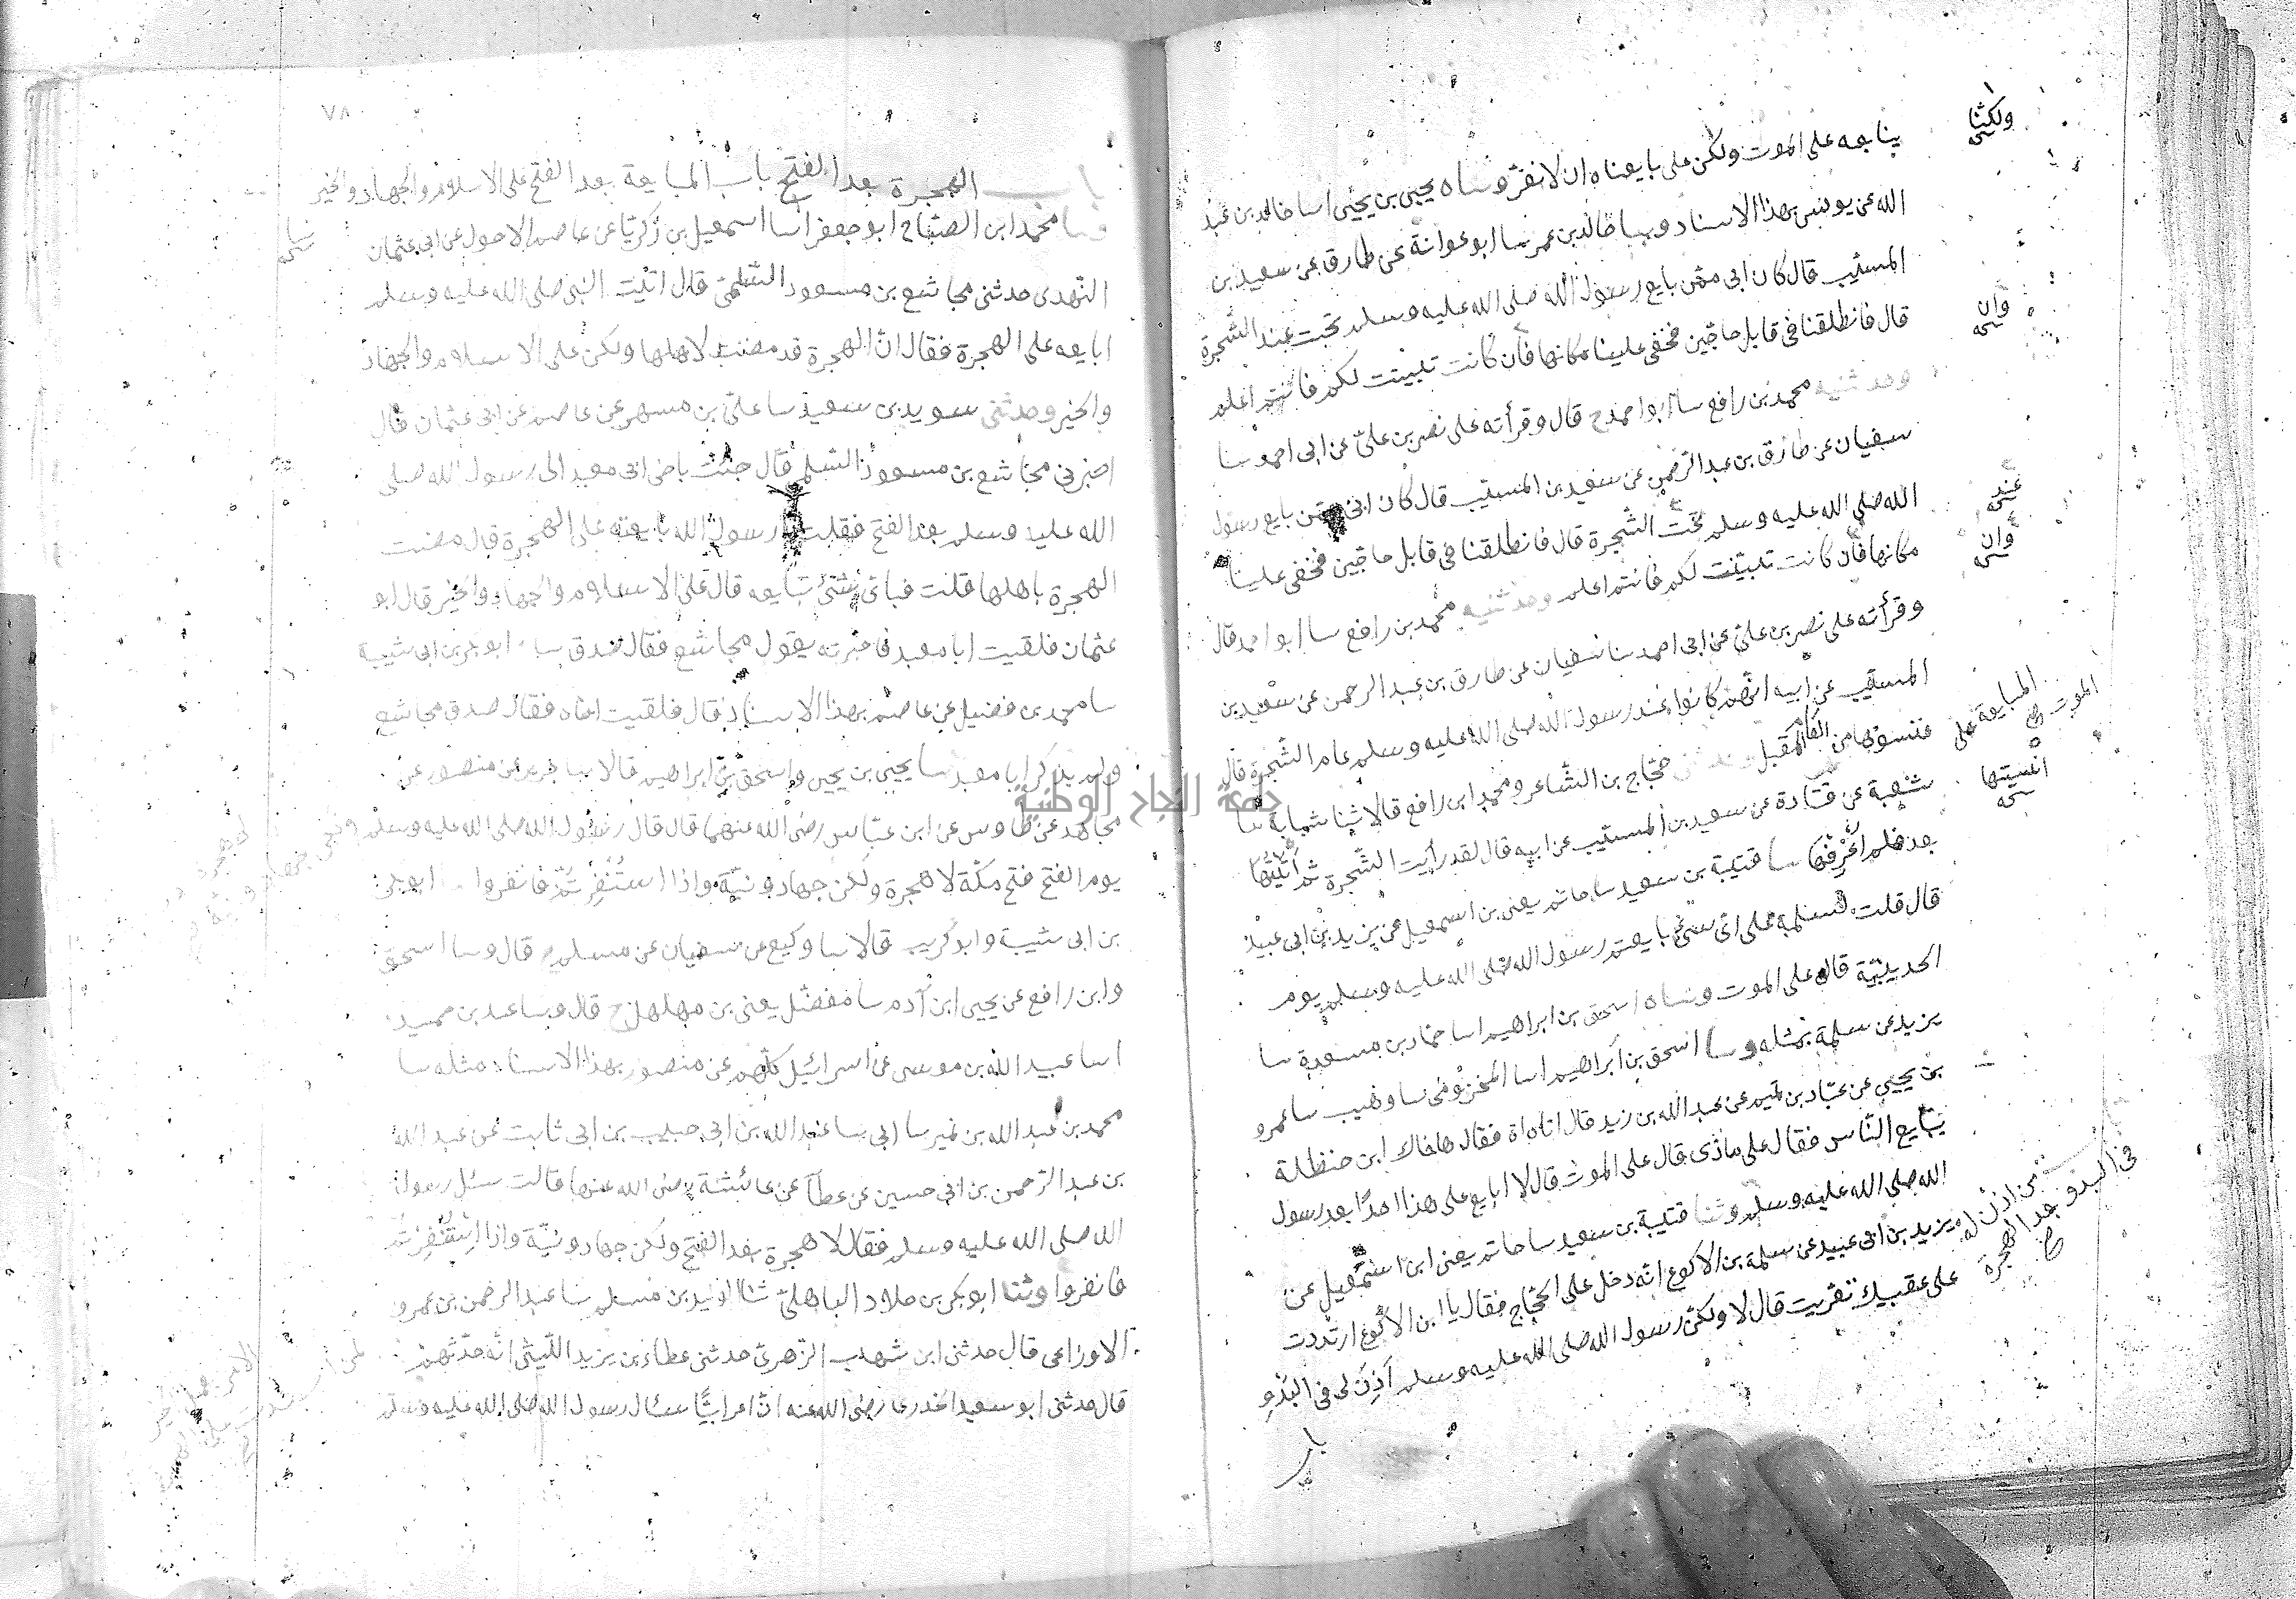 ولكننا
يبايعه على الموت ولكن على بايعناه ان لا نفر وساه يحيى بن يحيى اسا خالد بن عبد
الله عن يونس بهذا الاسناد وسا حامد بن عمر سا ابو عوانة عن طارق عن سعيد بن
المسيّب قال كان ابى ممن بايع رسول الله صلى الله عليه وسلم تحت عند الشجرة
قال فانطلقنا فى قابل حاجّين فخفى علينا مكانها فان كانت تبينت لكم فانتم اعلم
وان
وحدثنيه محمد بن رافع سا ابو احمد ح قال وقرأته على نصر بن علىّ عن ابى احمد سا
سفيان عن طارق بن عبد الرحمن عن سعيد بن المسيّب قال كان ابى ممن بايع رسول
الله صلى الله عليه وسلم تحت الشجرة قال فانطلقنا فى قابل حاجّين فخفى علينا
عند
مكانها فان كانت تبينت لكم فانتم اعلم وحدثنيه محمد بن رافع سا ابو احمد قال
وان
وقرأته على نصر بن علىّ عن ابى احمد سا سفيان عن طارق بن عبد الرحمن عن سعيد بن
المسيّب عن ابيه انّهم كانوا عند رسول الله صلى الله عليه وسلم عام الشّجرة قال
فنسوها من العام المقبل حجّاج بن الشّاعر ومحمد ابن رافع قالا ثنا شبابة سا
المبايعة على الموت
شعبة عن قتادة عن سعيد بن المسيّب عن ابيه قال لقد رأيت الشّجرة ثم اتيتها
انسيتها
بعد فلم اعرفها سا قتيبة بن سعيد سا حاتم يعنى بن اسمعيل عن يزيد بن ابى عبيد
قال قلت لسلمة على اى شىء بايعتم رسول الله صلى الله عليه وسلم يوم
الحديبيّة قال على الموت وساه اسحق بن ابراهيم اسا حماد بن مسعدة سا
يزيد عن سلمة بمثله وسا اسحق بن ابراهيم اسا المخزومى سا وهيب سا عمرو
بن يحيى عن عبّاد بن تميم عن عبد الله بن زيد قال اتاه اة فقال هاذاك ابن حنظلة
يبايع النّاس فقال على ماذى قال على الموت قال لا ابايع على هذا احدًا بعد رسول
الله صلى الله عليه وسلم وثنا قتيبة بن سعيد سا حاتم يعنى ابن اسمعيل عن
يزيد بن ابى عبيد عن سلمة بن الاكوع انه دخل على الحجّاج فقال يا ابن الاكوع ارتددت
على عقبيك تعرّبت قال لا ولكن رسول الله صلى الله عليه وسلم اَذِنَ لى فى البَدْوِ
من اذن له
فى البدو بعد الهجرة
باب
٧٨
باب الهجرة بعد الفتح باب المبايعة بعد الفتح على الاسلام والجهاد والخير
محمد ابن الصبّاح ابو جعفر اسا اسمعيل بن زكريّا عن عاصم الاحول عن ابى عثمان
النّهدى حدثنى مجاشع بن مسعود السّلمىّ قال اتيت النبى صلى الله عليه وسلم
ابايعه على الهجرة فقال انّ الهجرة قد مضت لاهلها ولكن على الاسلام والجهاد
والخير وحدثنى سويد بن سعيد سا علىّ بن مسهر عن عاصم عن ابى عثمان قال
اخبرنى مجاشع بن مسعود السّلمى قال جئت باخى ابى معبد الى رسول الله صلى
الله عليه وسلم بعد الفتح فقلت يا رسول الله بايعه على الهجرة قال مضت
الهجرة باهلها قلت فباى شىء تبايعه قال على الاسلام والجهاد والخير قال ابو
عثمان فلقيت ابا معبد فاخبرته بقول مجاشع فقال صدق سا ابو بكر بن ابى شيبة
سا محمد بن فضيل عن عاصم بهذا الاسناد قال فلقيت اخاه فقال صدق مجاشع
ولم يذكر ابا معبد سا يحيى بن يحيى واسحق بن ابراهيم قالا سا جرير عن منصور عن
مجاهد عن طاوس عن ابن عبّاس رضى الله عنهما قال قال رسول الله صلى الله عليه وسلم
يوم الفتح فتح مكّة لا هجرة ولكن جهاد ونيّة واذا استُنْفِرْتُمْ فانفروا ابو بكر
بن ابى شيبة وابو كريب قالا سا وكيع عن سفيان قال وسا اسحق
وابن رافع عن يحيى ابن آدم سا مفضّل يعنى بن مهلهل ح قال وسا عبد بن حميد
اسا عبيد الله بن موسى عن اسرائيل كلّهم عن منصور بهذا الاسناد مثله سا
محمد بن عبد الله بن نمير سا ابى سا عبد الله بن ابى حبيب بن ابى ثابت عن عبد الله
بن عبد الرّحمن بن ابى حسين عن عطآ عن عائشة رضى الله عنها قالت سئل رسول
الله صلى الله عليه وسلم فقال لا هجرة بعد الفتح ولكن جهاد ونيّة واذا استُنْفِرْتُمْ
فانفروا وثنا ابو بكر بن خلاد الباهلىّ ثنا الوليد بن مسلم سا عبد الرحمن بن عمرو
الاوزاعى قال حدثنى ابن شهاب الزّهرىّ حدثنى عطاء بن يزيد اللّيثى انّه حدّثهم
قال حدثنى ابو سعيد الخدرى رضى الله عنه انّ اعرابيًّا سئال رسول الله صلى الله عليه وسلم
جامعة النجاح الوطنية